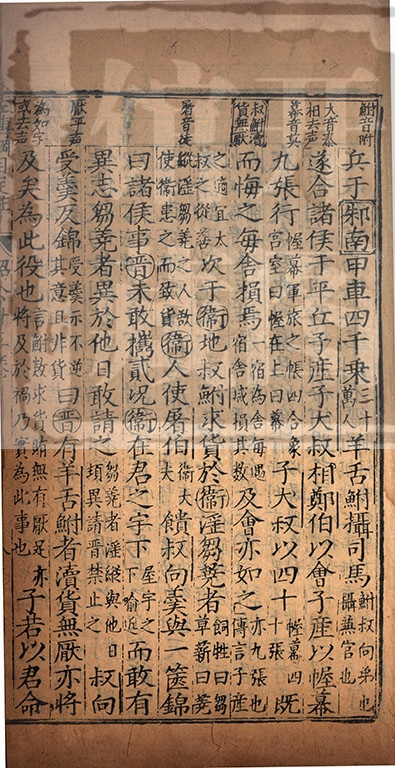 鮒音附
兵于邾南甲車四千乘三十萬人羊舌鮒攝司馬鮒叔向弟也攝兼官也
大音泰相去声
遂合諸侯于平丘子產子大叔相鄭伯以會子產以幄幕
幕音莫
九張行幄幕軍旅之帳四合象宮室曰幄在上曰幕子大叔以四十幄幕四十張既
叔鮒瀆貨無厭
而悔之每舍損焉一宿為舍每遇宿舍減損其數及會亦如之亦九張也傳言子產
之適宜太叔之從善次于衛地叔鮒求貨於衛淫芻蕘者飼牲曰芻草薪曰蕘
屠音徒
縱淫芻蕘之人欲使衛患之而致貨衛人使屠伯衛大夫饋叔向羹與一篋錦
曰諸侯事晉未敢攜貳況衛在君之宇下屋宇之下喻近而敢有
異志芻蕘者異於他日敢請之芻蕘者淫縱與他日頃異請晉禁止之叔向
厭平声
受羹反錦受羹示不逆其意且非貨曰晉有羊舌鮒者瀆貨無厭亦將
為如字或去声
及矣為此役也言鮒數求貨賄無有厭足亦將及於禍乃實為此事也子若以君命